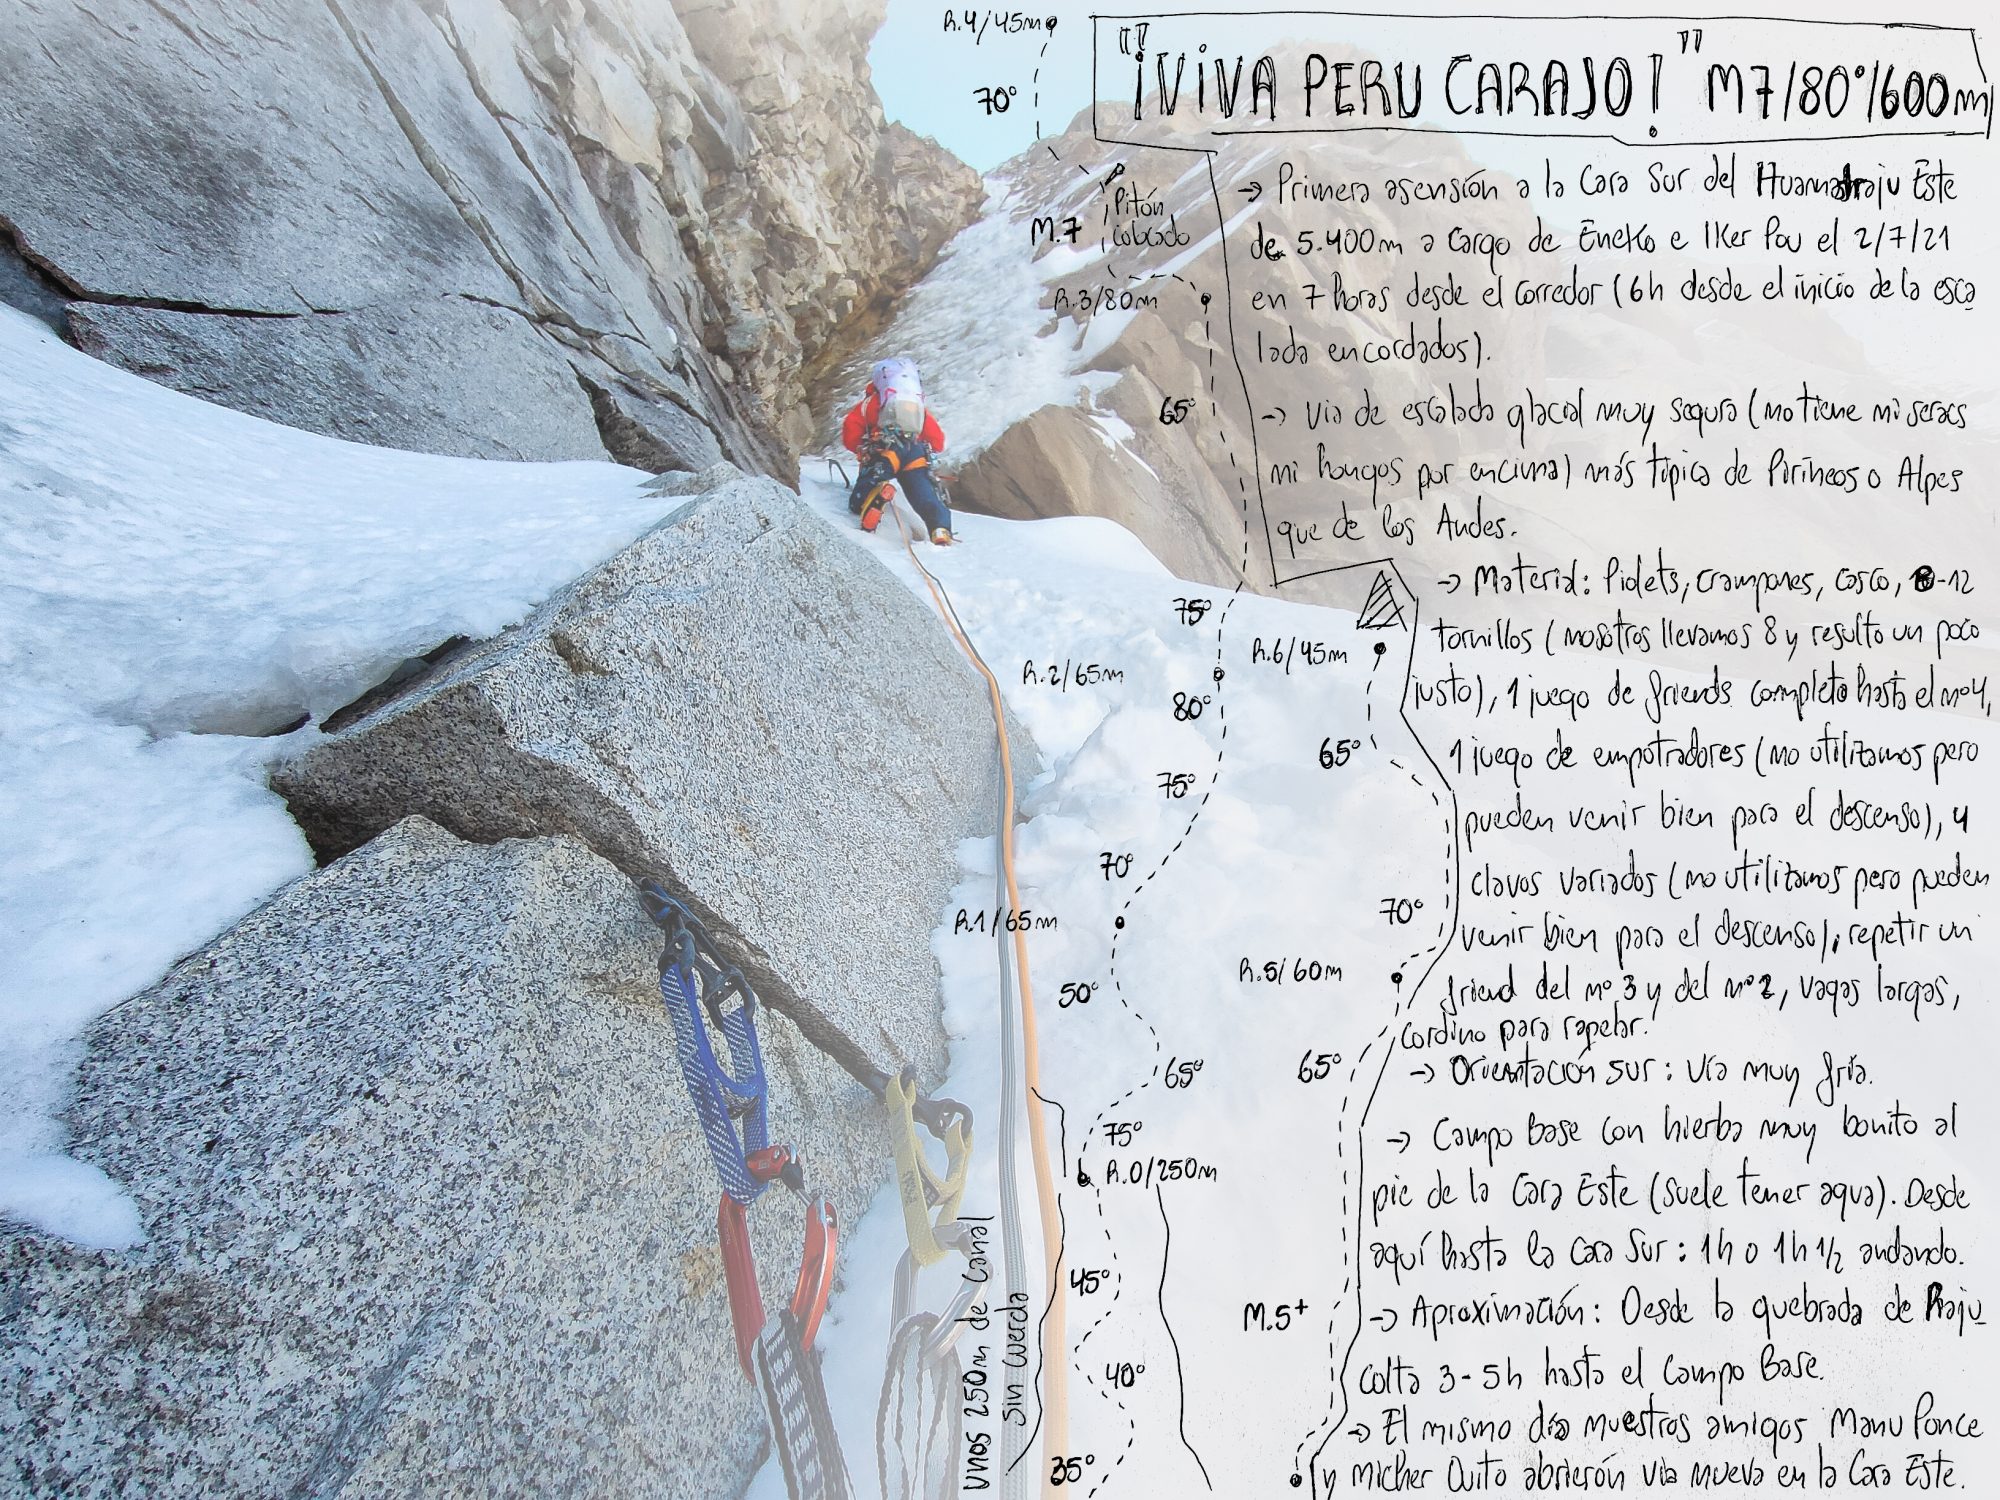 "¡VIVA PERU CARAJO!" M7/80°/600m
→ Primera asensión a la Cara Sur del Huamashraju Este
de 5.400m a cargo de Eneko e Iker Pou el 2/7/21
en 7 horas desde el corredor (6h desde el inicio de la esca
lada encordados).
→ Via de escalada glacial muy segura (no tiene ni seracs
ni hongos por encima) más típica de Pirineos o Alpes
que de los Andes.
→ Material: Piolets, crampones, casco, 10-12
tornillos (nosotros llevamos 8 y resulto un poco
justo), 1 juego de friends completo hasta el nº4,
1 juego de empotradores (no utilizamos pero
pueden venir bien para el descenso), 4
clavos variados (no utilizamos pero pueden
venir bien para el descenso), repetir un
friend del nº 3 y del nº 2, vagas largas,
cordino para rapelar.
→ Orientación sur: Vía muy fría.
→ Campo Base con hierba muy bonito al
pie de la Cara Este (suele tener agua). Desde
aquí hasta la Cara Sur: 1h o 1h 1/2 andando.
→ Aproximación: Desde la quebrada de Raju
colta 3-5h hasta el Campo Base.
→ El mismo día nuestros amigos Manu Ponce
y Micher Quito abrierón via nueva en la Cara Este.
R.4/45m
70°
Pitón
colocado
M.7
R.3/80m
65°
75°
R.2/65m
80°
75°
70°
R.1/65m
50°
65°
75°
R.0/250m
45°
40°
35°
Unos 250m de Canal
Sin cuerda
R.6/45m
65°
70°
R.5/60m
65°
M.5+